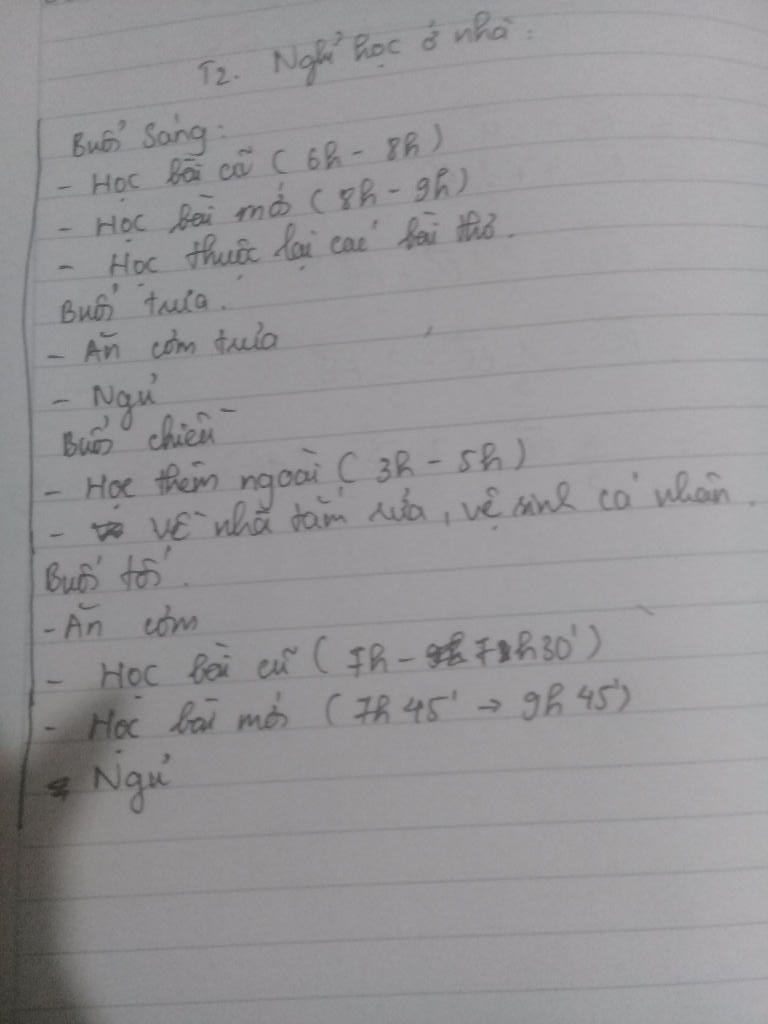 T2. Nghỉ học ở nhà:
Buổi Sáng:
- Học bài cũ (6h - 8h)
- Học bài mới (8h - 9h)
- Học thuộc lại các bài thơ.
Buổi trưa.
- Ăn cơm trưa
- Ngủ
Buổi chiều
- Học thêm ngoài (3h - 5h)
- Về nhà tắm rửa, vệ sinh cá nhân.
Buổi tối.
- Ăn cơm
- Học bài cũ (7h - 7h30')
- Học bài mới (7h45' → 9h45')
- Ngủ